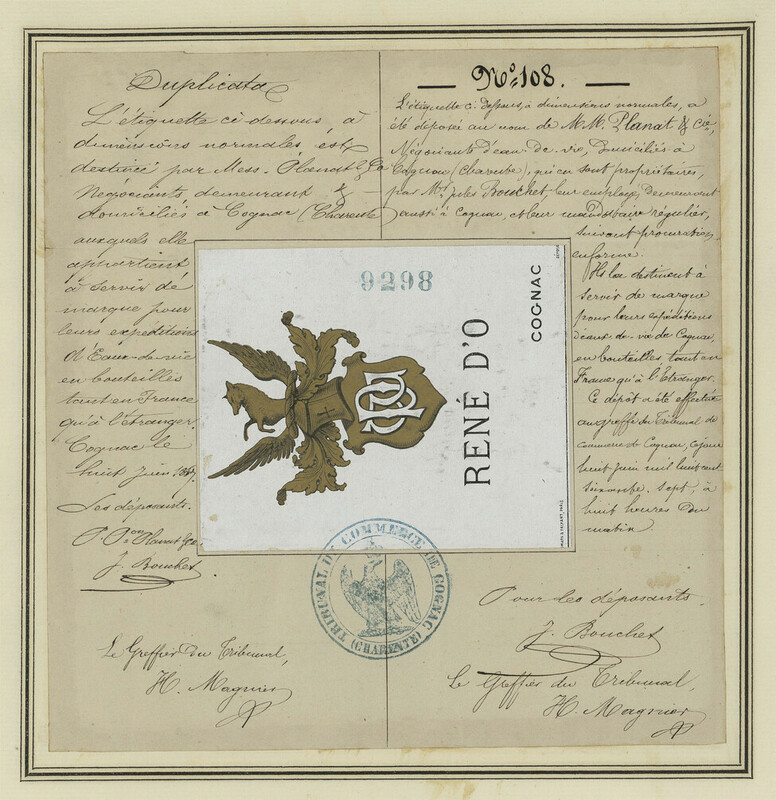 Duplicata
L'étiquette ci-dessous, à
dimensions normales, est
destinée par Mess. Planat & Cie
Négociants demeurant &
domiciliés à Cognac (Charente
auxquels elle
appartient
à servir de
marque pour
leurs expéditions
d'Eaux-de-vie
en bouteilles
tant en France
qu'à l'étranger.
Cognac le
huit Juin 1867.
Les déposants.
P. Pon Planat & Cie
J. Bouchet
Le Greffier du Tribunal,
H. Magnier
No. 108.
L'étiquette ci-dessous, à dimensions normales, a
été déposée au nom de M.M. Planat & Cie,
Négociants d'eau-de-vie, Domiciliés à
Cognac (Charente), qui en sont propriétaires,
par Mr. Jules Bouchet leur employé, demeurant
aussi à Cognac, et leur mandataire régulier,
suivant procuration
en forme.
Ils la destinent à
servir de marque
pour leurs expéditions
d'eaux-de-vie de Cognac,
en bouteilles, tant en
France qu'à l'Etranger.
Ce dépôt a été effectué
au greffe du Tribunal de
commerce de Cognac, ce jour
huit Juin mil huit cent
soixante-sept, à
huit heures du
matin.
Pour les déposants.
J. Bouchet
Le Greffier du Tribunal,
H. Magnier
9298
RENÉ D'O
COGNAC
TRIBUNAL DE COMMERCE DE COGNAC
(CHARENTE)